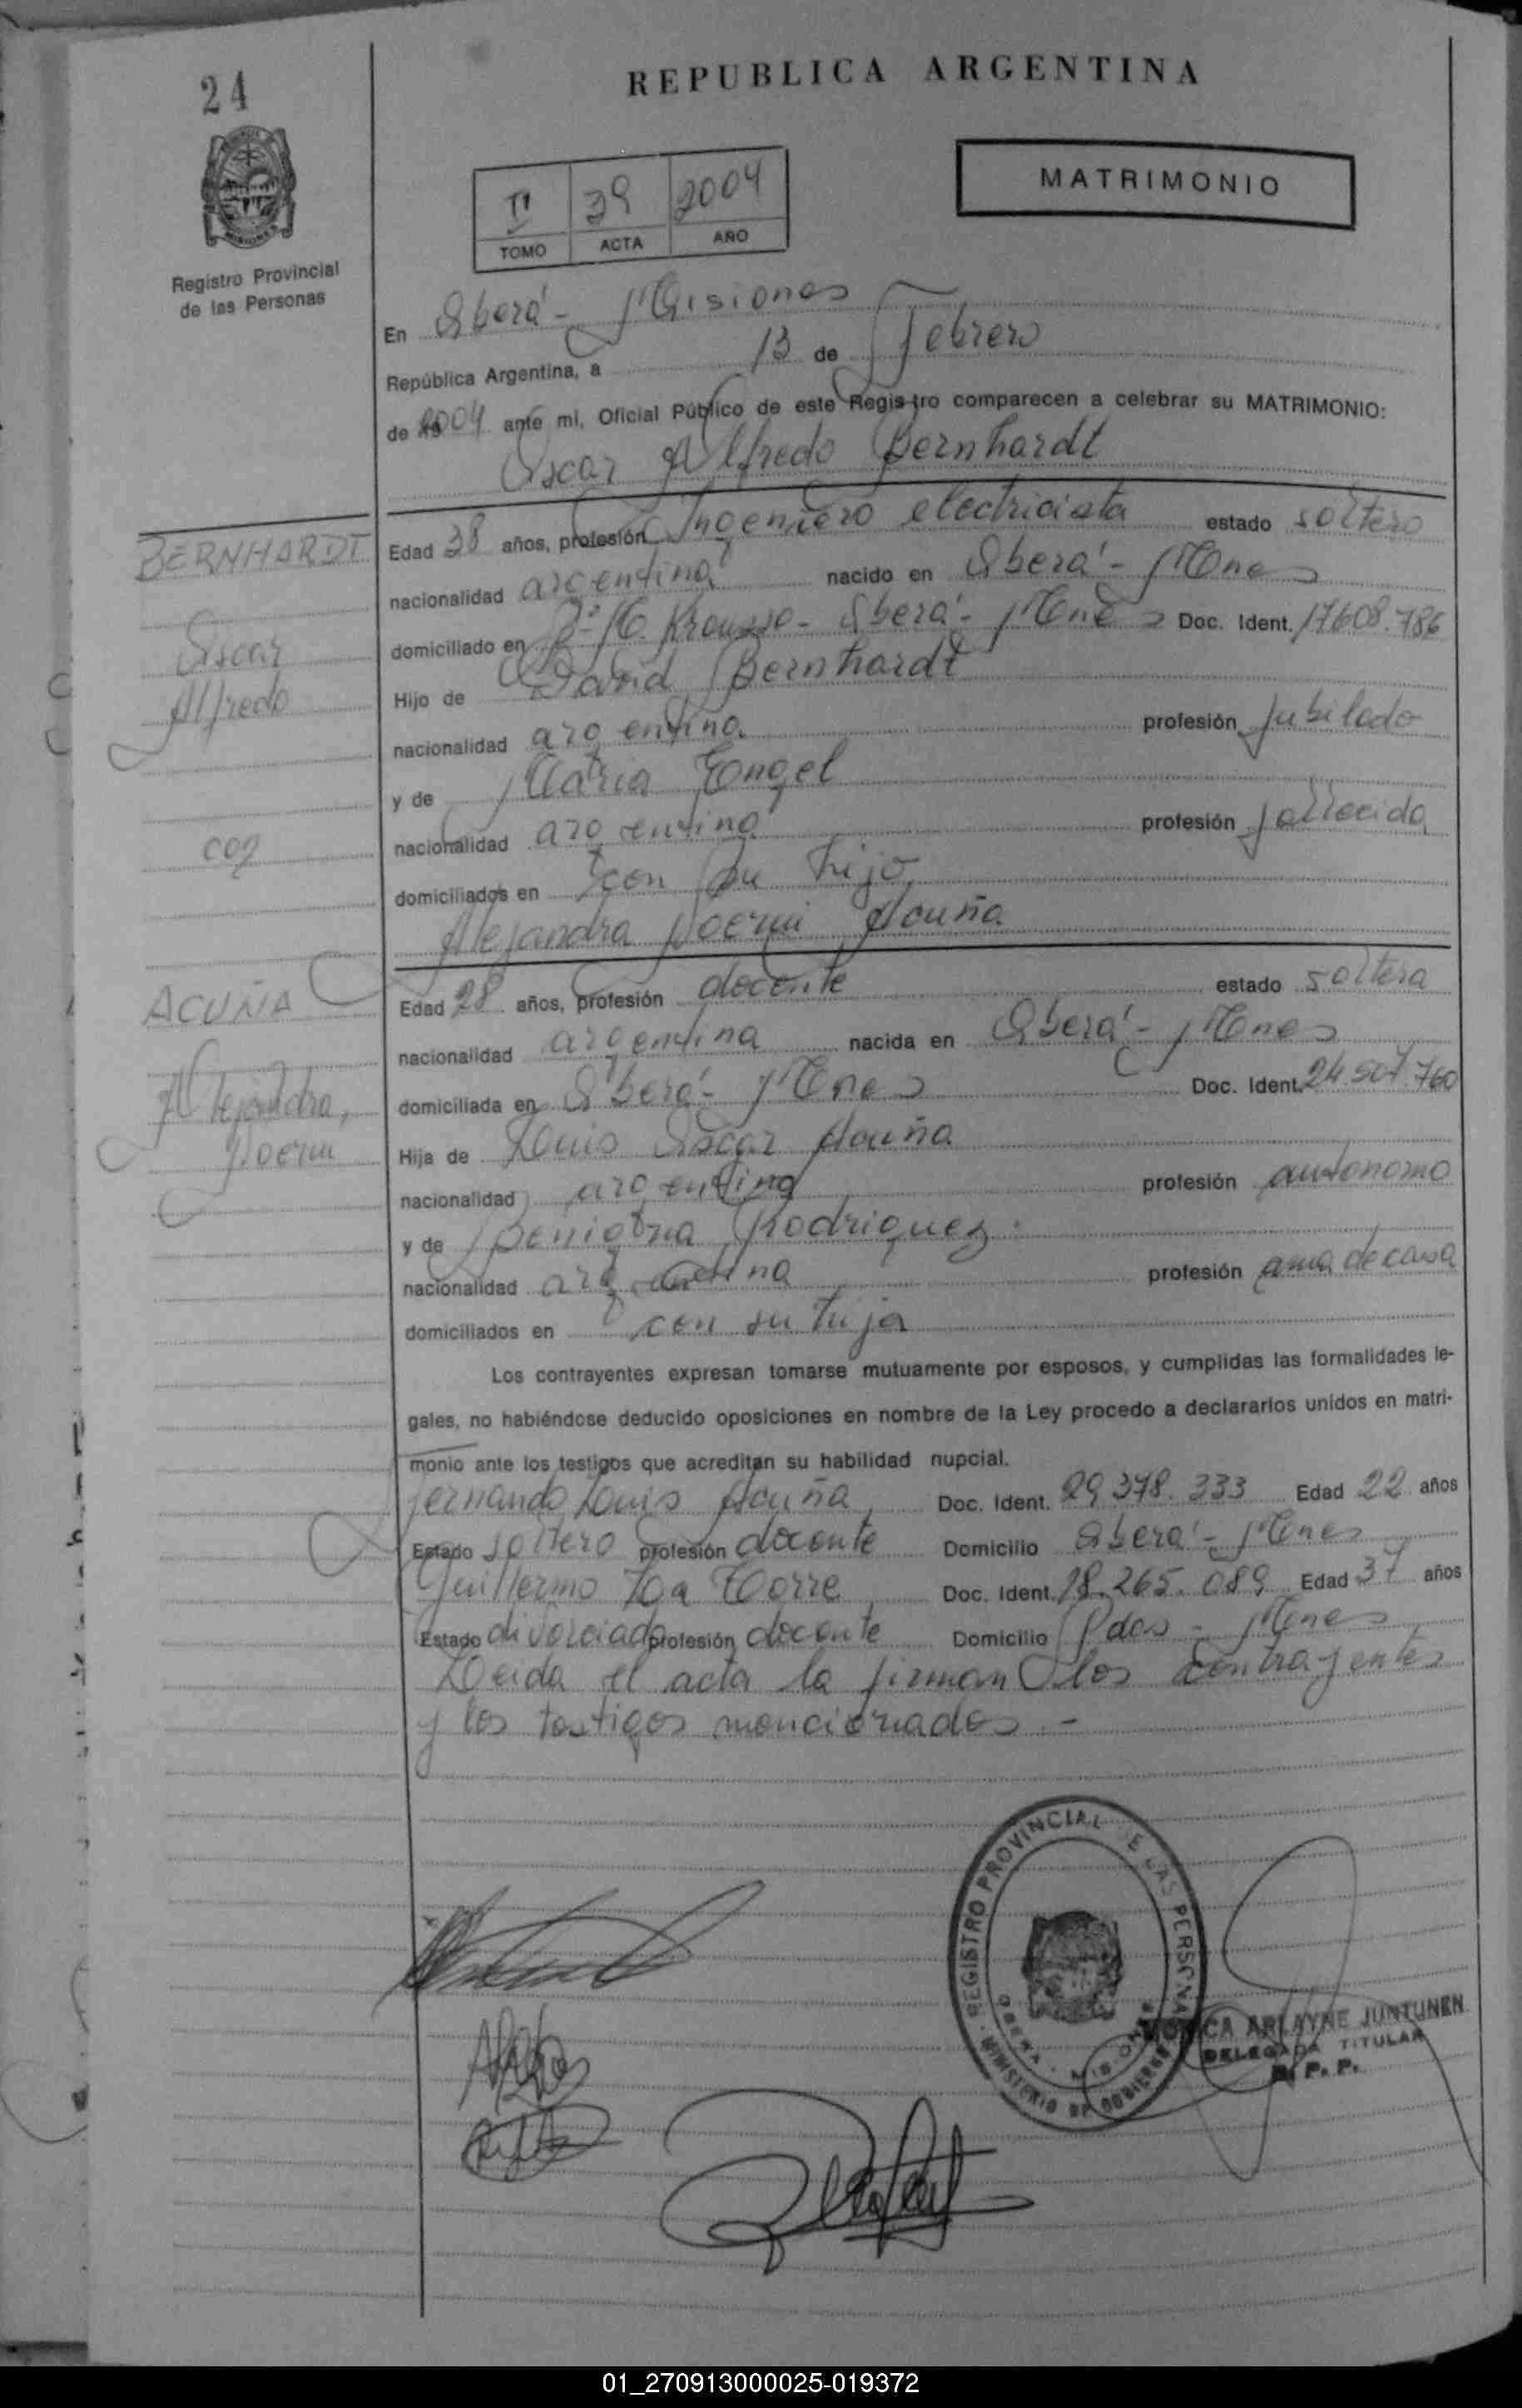 24
REPUBLICA ARGENTINA
MISIONES
Registro Provincial
de las Personas
39 2004
TOMO ACTA AÑO
MATRIMONIO
En Oberá - Misiones
República Argentina, a 13 de Febrero
de 2004 ante mi, Oficial Público de este Registro comparecen a celebrar su MATRIMONIO:
Oscar Alfredo Bernhardt
BERNHARDT
Oscar
Alfredo
con
ACUÑA
Alejandra
Noemi
Edad 38 años, profesión Ingeniero electricista estado soltero
nacionalidad argentina nacido en Oberá - Mnes
domiciliado en Krausse - Oberá - Mnes Doc. Ident. 17.608.786
Hijo de David Bernhardt
nacionalidad argentina profesión Jubilado
y de Maria Engel
nacionalidad argentina profesión fallecida
domiciliados en con su hijo
Alejandra Noemi Acuña
Edad 28 años, profesión docente estado soltera
nacionalidad argentina nacida en Oberá - Mnes
domiciliada en Oberá - Mnes Doc. Ident. 24.507.760
Hija de Luis Oscar Acuña
nacionalidad argentina profesión autonomo
y de Benigna Rodriguez
nacionalidad argentina profesión ama de casa
domiciliados en con su hija
Los contrayentes expresan tomarse mutuamente por esposos, y cumplidas las formalidades le-
gales, no habiéndose deducido oposiciones en nombre de la Ley procedo a declararlos unidos en matri-
monio ante los testigos que acreditan su habilidad nupcial.
Fernando Luis Acuña Doc. Ident. 29.378.333 Edad 22 años
Estado soltero profesión docente Domicilio Oberá - Mnes
Guillermo La Torre Doc. Ident. 18.265.089 Edad 37 años
Estado divorciado profesión docente Domicilio Pdas - Mnes
Leida el acta la firman los contrayentes
y los testigos mencionados.-
REGISTRO PROVINCIAL DE LAS PERSONAS
MINISTERIO DE GOBIERNO
OBERA - MISIONES
MONICA ARLAYNE JUNTUNEN
DELEGADA TITULAR
R. P. P.
01_270913000025-019372